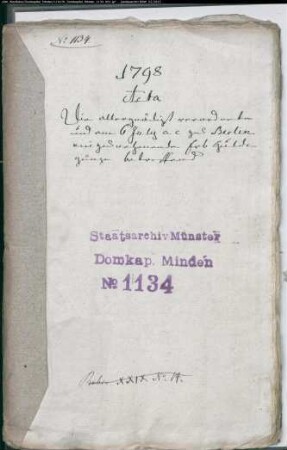 N. 1134
1798
Acta
Die allergnädigst verordnete
und am 6 July a. c. zu Berlin
Erb Huldi-
gung betreffend
Staatsarchiv Münster
Domkap. Minden
№ 1134
XXIX No. 14.